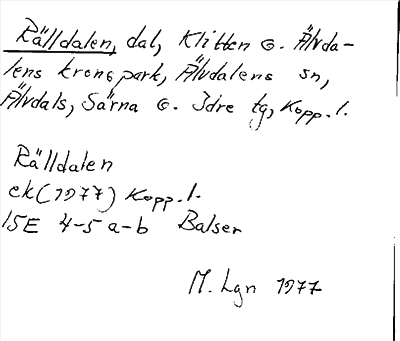 Rälldalen, dal, Klitten o. Älvda-
lens kronopark, Älvdalens sn,
Älvdals, Särna o. Idre tg, Kopp. l.
Rälldalen
ek (1977) Kopp. l.
15E 4-5 a-b Balser
M. Lgn 1977